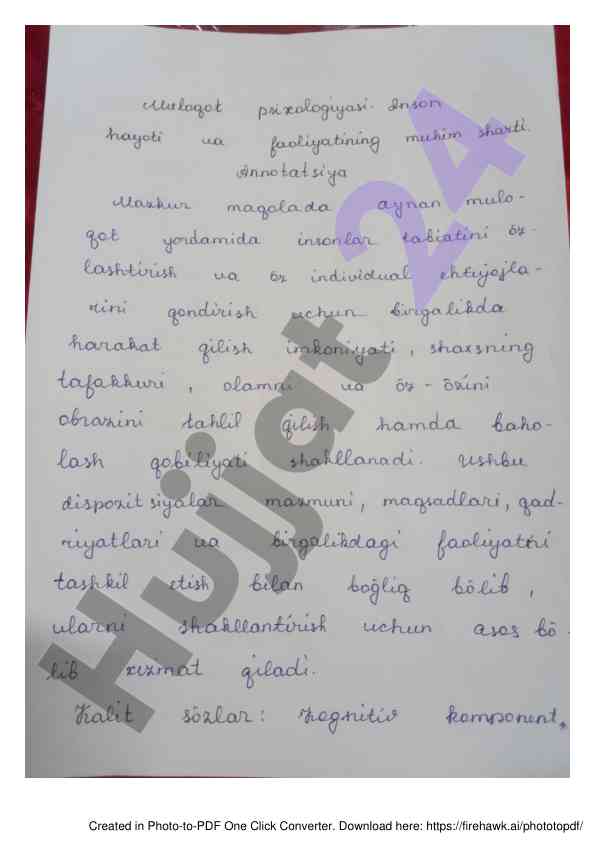 Muloqot psixologiyasi. Inson
hayoti va faoliyatining muhim sharti.
Annotatsiya
Mazkur maqolada aynan mulo-
qot yordamida insonlar tabiatini öz-
lashtirish va öz individual ehtiyojla-
rini qondirish uchun birgalikda
harakat qilish imkoniyati, shaxsning
tafakkuri, olamni va öz-özini
obrazini tahlil qilish hamda baho-
lash qobiliyati shakllanadi. Ushbu
dispozitsiyalar mazmuni, maqsadlari, qad-
riyatlari va birgalikdagi faoliyatni
tashkil etish bilan boğliq bölib,
ularni shakllantirish uchun asos bö
lib xizmat qiladi.
Kalit sözlar: Kognitiv komponent,
Hujjat 24
Created in Photo-to-PDF One Click Converter. Download here: https://firehawk.ai/phototopdf/